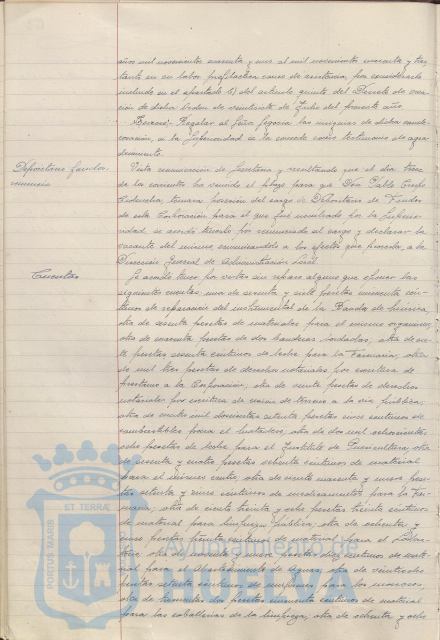 años mil novecientos cuarenta y uno al mil novecientos cuarenta y tres
tanto en su labor profiláctica como de asistencia, por considerarlo
incluido en el apartado b) del artículo quinto del Decreto de crea-
ción de dicha Orden de veintisiete de Julio del presente año.
Tercero: Regalar al Señor Segovia las insignias de dicha conde-
coración, si la Superioridad se la concede como testimonio de agra-
decimiento.
Depositario fondos.
renuncia
Vista comunicación de Secretaría y resultando que el día trece
de los corrientes ha vencido el plazo para que Don Pablo Crespo
tomara posesión del cargo de Depositario de Fondos
de esta Corporación para el que fué nombrado por la Superio-
ridad, se acordó tenerlo por renunciado al cargo y declarar la
vacante del mismo comunicándolo a los efectos que proceda, a la
Dirección General de Administración Local.
Cuentas
Se acordó tener por vistas sin reparo alguno que oponer las
siguientes cuentas, una de cuarenta y siete pesetas cincuenta cén-
timos de reparación del instrumental de la Banda de Música,
otra de sesenta pesetas de materiales para el mismo organismo,
otra de cuarenta pesetas de dos banderas bordadas, otra de
pesetas céntimos de leche para la Farmacia, otra
de mil tres pesetas de derechos notariales por escritura de
préstamo a la Corporación, otra de veinte pesetas de derechos
notariales por escritura de cesión de terreno a la vía pública,
otra de cuatro mil doscientas setenta pesetas cinco céntimos de
combustibles para el Matadero, otra de dos mil ochocientas
ocho pesetas de leche para el Instituto de Puericultura, otra
de sesenta y cuatro pesetas setenta céntimos de material
para el mismo centro, otra de ciento cuarenta y nueve pese-
tas setenta y cinco céntimos de medicamentos para la Far-
macia, otra de ciento treinta y ocho pesetas treinta céntimos
de material para limpieza pública, otra de ochenta y
cinco pesetas treinta céntimos de material para el
otra de noventa y nueve pesetas diez céntimos de mate-
rial para el Abastecimiento de Aguas, otra de veintiocho
pesetas setenta céntimos de para los
otra de trescientas dos pesetas cincuenta céntimos de material
para las caballerías de la limpieza, otra de ochenta y ocho
PORTUS MARIS
ET TERRAE
Ayuntamiento de
HUELVA